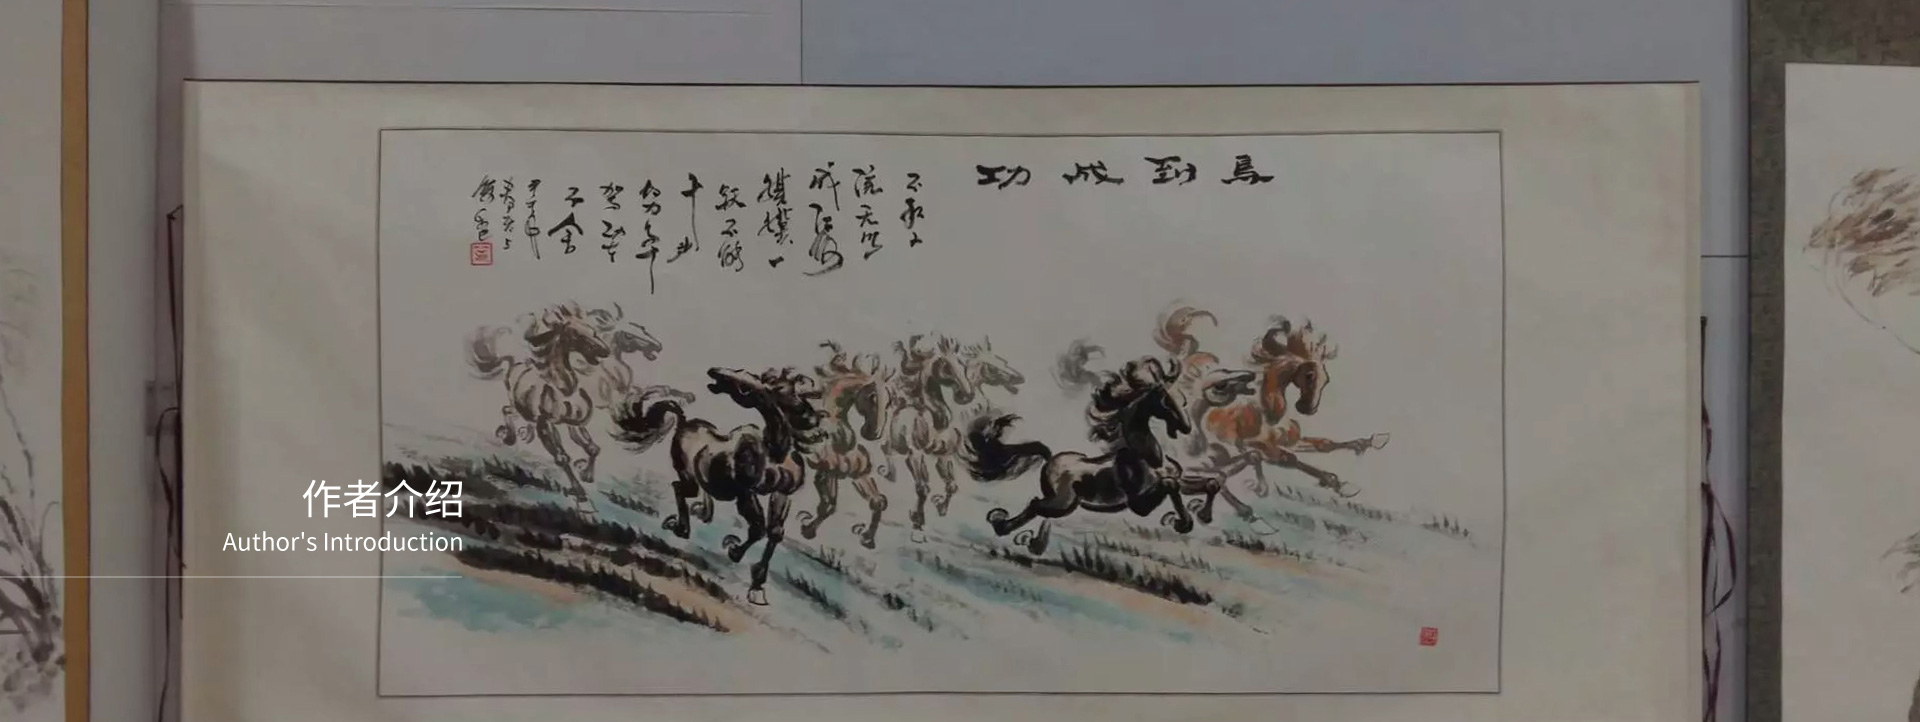 馬到成功
不积小
流无以
成江海
骐骥一
跃不能
十步
驾功在
不舍
作者介绍
Author's Introduction